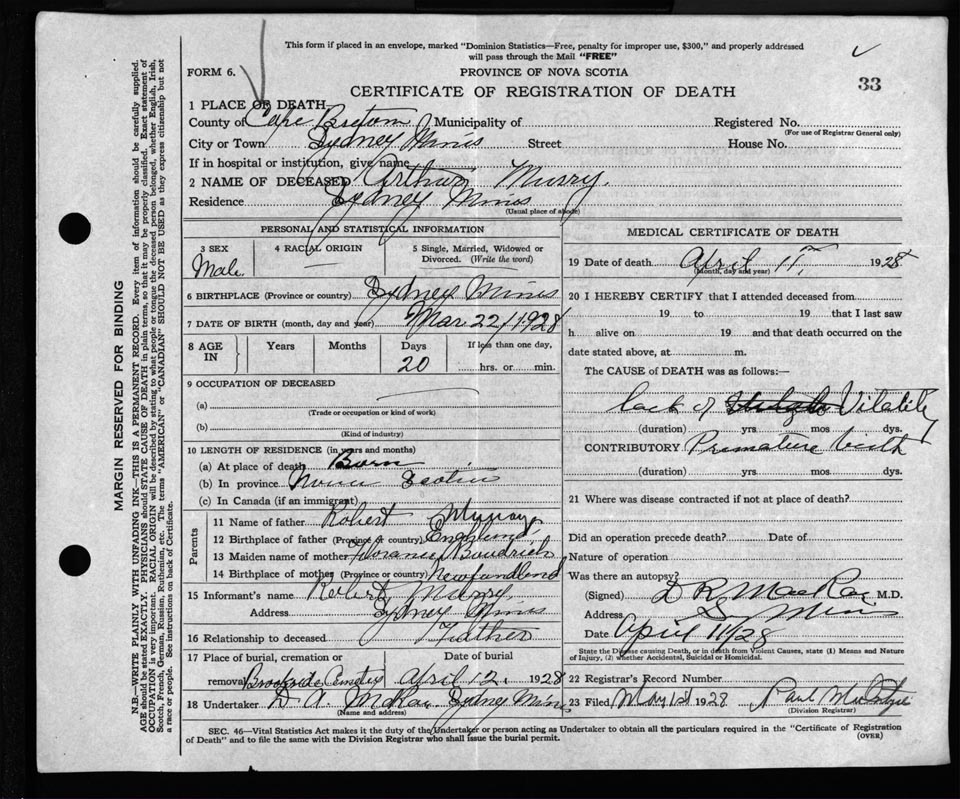 This form if placed in an envelope, marked "Dominion Statistics—Free, penalty for improper use, $300," and properly addressed
will pass through the Mail "FREE"
FORM 6.
PROVINCE OF NOVA SCOTIA
33
CERTIFICATE OF REGISTRATION OF DEATH
1 PLACE OF DEATH
County of Cape Breton Municipality of Registered No.
(For use of Registrar General only)
City or Town Sydney Mines Street House No.
If in hospital or institution, give name
2 NAME OF DECEASED Arthur Murry.
Residence Sydney Mines
(Usual place of abode)
PERSONAL AND STATISTICAL INFORMATION
3 SEX 4 RACIAL ORIGIN 5 Single, Married, Widowed or
Divorced. (Write the word)
Male
6 BIRTHPLACE (Province or country) Sydney Mines
7 DATE OF BIRTH (month, day and year) Mar. 22/1928
8 AGE IN Years Months Days If less than one day,
20 hrs. or min.
9 OCCUPATION OF DECEASED
(a)
(Trade or occupation or kind of work)
(b)
(Kind of industry)
10 LENGTH OF RESIDENCE (in years and months)
(a) At place of death Born
(b) In province Nova Scotia
(c) In Canada (if an immigrant)
Parents
11 Name of father Robert Murray
12 Birthplace of father (Province or country) England
13 Maiden name of mother
14 Birthplace of mother (Province or country) Newfundland
15 Informant's name Robert Murry
Address Sydney Mines
16 Relationship to deceased Father
17 Place of burial, cremation or Date of burial
removal Brookside April 12. 1928
18 Undertaker D. A. McRae Sydney Mines
(Name and address)
MEDICAL CERTIFICATE OF DEATH
19 Date of death April 11, 1928
(Month, day and year)
20 I HEREBY CERTIFY that I attended deceased from
19 to 19 that I last saw
h alive on 19 and that death occurred on the
date stated above, at m.
The CAUSE of DEATH was as follows:—
lack of Vitality
(duration) yrs. mos dys.
CONTRIBUTORY Premature birth
(duration) yrs. mos. dys.
21 Where was disease contracted if not at place of death?
Did an operation precede death? Date of
Nature of operation
Was there an autopsy?
(Signed) D R MacRae M.D.
Address S. Mines
Date April 11/28
State the Disease causing Death, or in death from Violent Causes, state (1) Means and Nature
of Injury, (2) whether Accidental, Suicidal or Homicidal.
22 Registrar's Record Number
23 Filed May 1928 Paul
(Division Registrar)
SEC. 46—Vital Statistics Act makes it the duty of the Undertaker or person acting as Undertaker to obtain all the particulars required in the "Certificate of Registration
of Death" and to file the same with the Division Registrar who shall issue the burial permit.
(OVER)
MARGIN RESERVED FOR BINDING
N.B.—WRITE PLAINLY WITH UNFADING INK—THIS IS A PERMANENT RECORD. Every item of information should be carefully supplied.
AGE should be stated EXACTLY. PHYSICIANS should STATE CAUSE OF DEATH in plain terms, so that it may be properly classified. Exact statement of
OCCUPATION is very important. RACIAL ORIGIN will be described by stating to what people or tongue the deceased person belonged, whether English, Irish,
Scotch, French, German, Russian, Ruthenian, etc. The terms "AMERICAN" or "CANADIAN" SHOULD NOT BE USED as they express citizenship but not
a race or people. See instructions on back of Certificate.